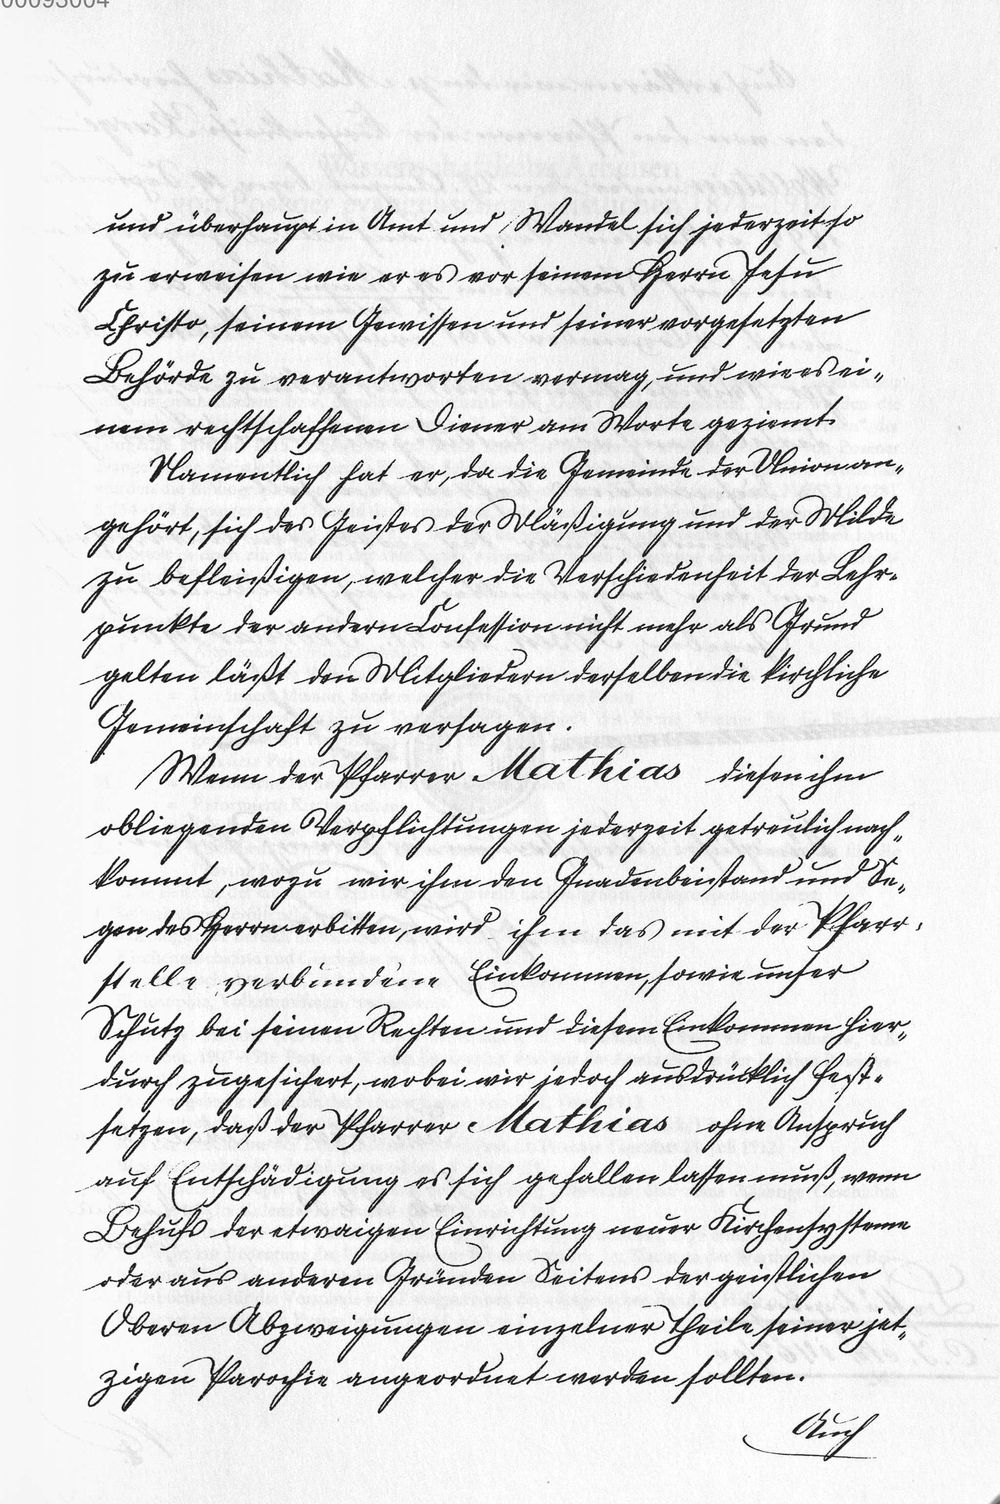 00093004
und überhaupt in Amt und Wandel sich jederzeit so
zu erweisen wie er es vor seinem Herrn Jesu
Christo, seinem Gewissen und seiner vorgesetzten
Behörde zu verantworten vermag, und wie es ei„
nem rechtschaffenen Diener am Worte geziemt.
Namentlich hat er, da die Gemeinde der Union an„
gehört, sich des Geistes der Mäßigung und der Milde
zu befleißigen, welcher die Verschiedenheit der Lehr-
punkte der andern Confession nicht mehr als Grund
gelten läßt den Mitgliedern derselben die kirchliche
Gemeinschaft zu versagen.
Wenn der Pfarrer Mathias diesen ihm
obliegenden Verpflichtungen jederzeit getreulich nach„
kommt, wozu wir ihm den Gnadenbeistand und Se„
gen des Herrn erbitten, wird ihm das mit der Pfarr-
stelle verbundene Einkommen, sowie unser
Schutz bei seinen Rechten und diesem Einkommen hier„
durch zugesichert, wobei wir jedoch ausdrücklich fest-
setzen, daß der Pfarrer Mathias ohne Anspruch
auf Entschädigung es sich gefallen lassen muß, wenn
Behufs der etwaigen Einrichtung neuer Kirchensysteme
oder aus anderen Gründen Seitens der geistlichen
Oberen Abzweigungen einzelner Theile seiner jet„
zigen Parochie angeordnet werden sollten.
Auch